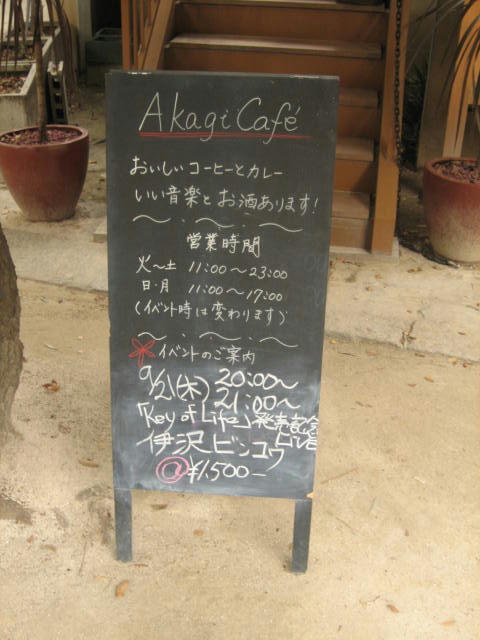 Akagi Café
おいしいコーヒーとカレー
いい音楽とお酒あります!
営業時間
火〜土 11:00〜23:00
日・月 11:00〜17:00
(イベント時は変わります)
イベントのご案内
9/21(木) 20:00〜
21:00〜
「Key of Life」発売記念
LIVE
伊沢ビンコウ
@¥1,500-